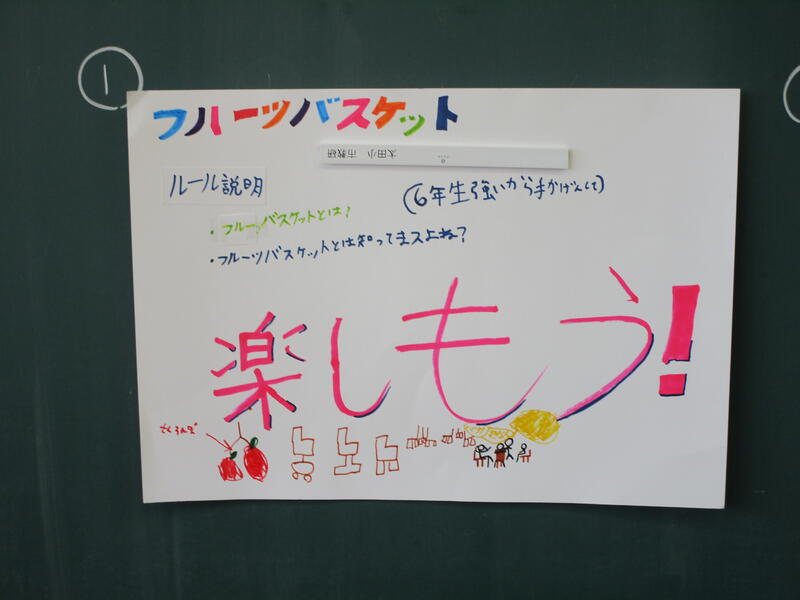 ①
フルーツバスケット
太田小 市教研
ルール説明
(6年生強いから手かげんして)
・フルーツバスケットとは?
・フルーツバスケットとは知ってますよね?
楽しもう!
さくらんぼ